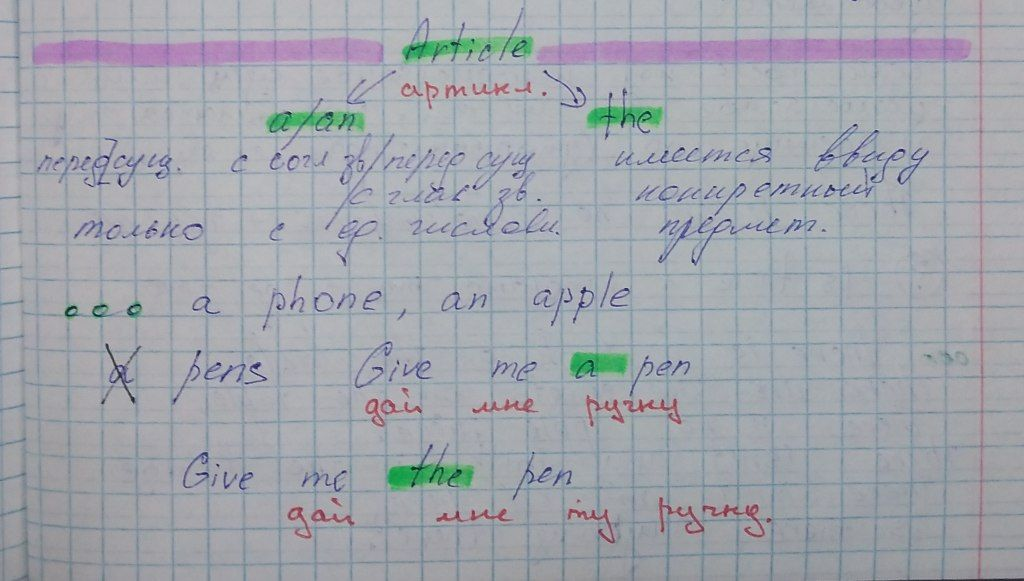 Article
артикл.
a/an the
перед сущ. с согл зв/перед сущ имеется ввиду
с глас зв. конкретный
только с ед. числом. предмет.
a phone, an apple
a pens Give me a pen
дай мне ручку
Give me the pen
дай мне ту ручку.